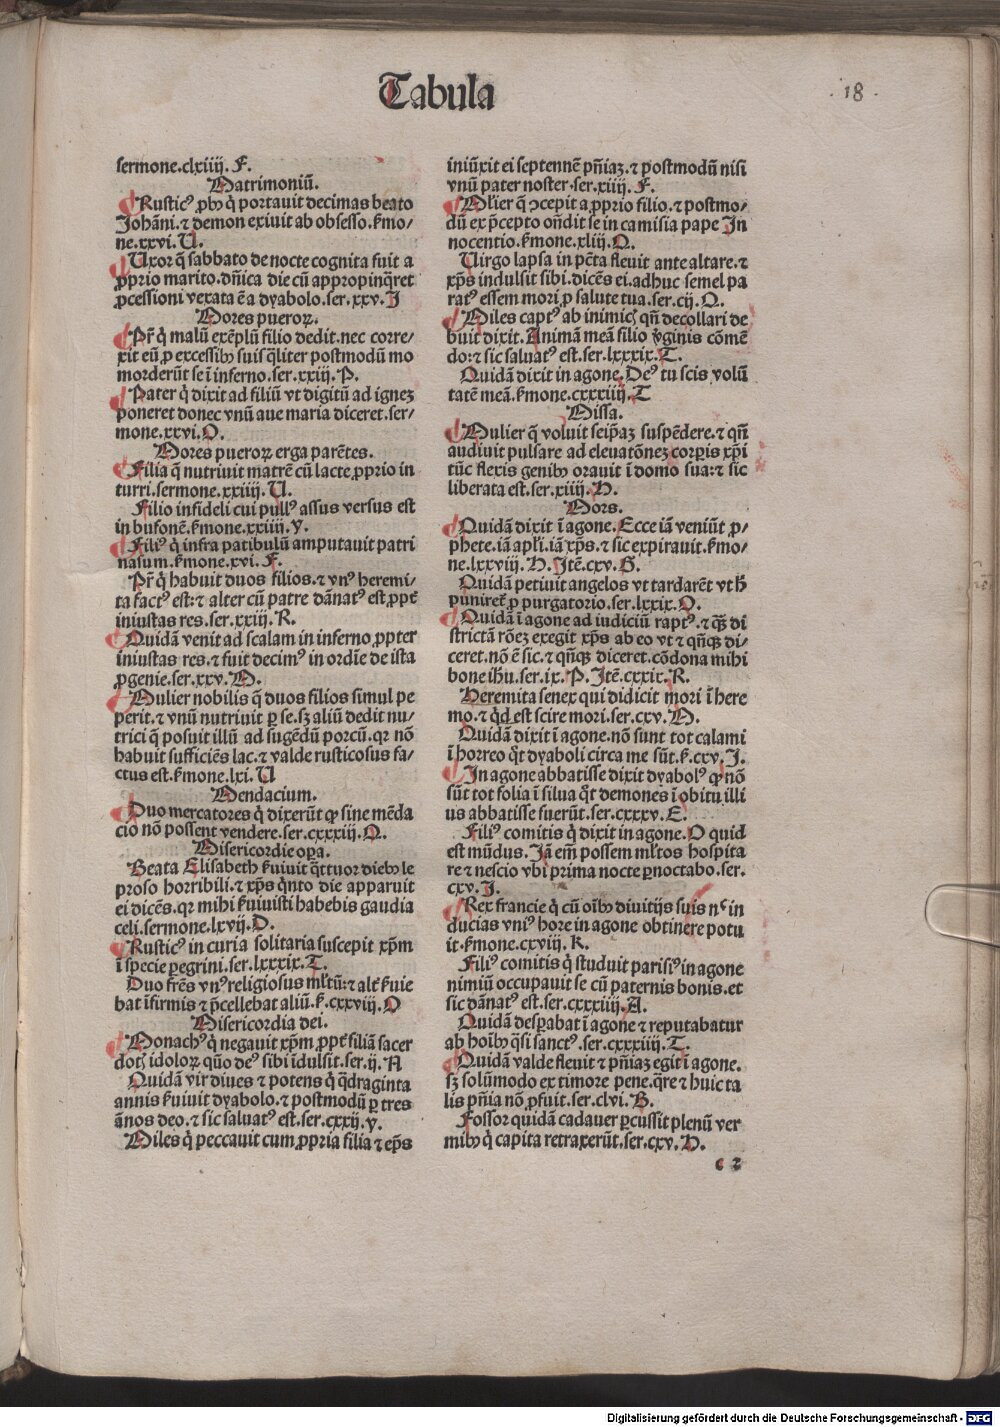 Tabula
.18.
sermone.clxiiij. F.
Matrimoniū.
Rusticꝰ ꝓbꝰ q̇ portauit decimas beato
Johāni.⁊ demon exiuit ab obsesso. ẜmo/
ne.xxvi. U.
Uxor q̄ sabbato de nocte cognita fuit a
ꝓprio marito.dñica die cū appropinq̄ret
ꝓcessioni vexata ē a dyabolo.ser.xxv. J
Mores pueroꝝ.
Pr̄ q̇ malū exēplū filio dedit.nec corre/
xit eū ꝓ excessibꝰ suis q̄liter postmodū mo
morderūt se ī inferno.ser.xxiij. P.
Pater q̇ dixit ad filiū vt digitū ad ignez
poneret donec vnū aue maria diceret.ser/
mone.xxvi. O.
Mores pueroꝝ erga parētes.
Filia q̄ nutriuit matrē cū lacte ꝓprio in
turri.sermone.xxiiij. U.
Filio infideli cui pullꝰ assus versus est
in bufonē.ẜmone.xxiiij. y.
Filiꝰ q̇ infra patibulū amputauit patri
nasum.ẜmone.xvi. F.
Pr̄ q̇ habuit duos filios.⁊ vnꝰ heremi/
ta factꝰ est:⁊ alter cū patre dānatꝰ est ꝓpt̄
iniustas res.ser.xxiij. R.
Quidā venit ad scalam in inferno ꝓpter
iniustas res.⁊ fuit decimꝰ in ordīe de ista
ꝓgenie.ser.xxv. M.
Mulier nobilis q̄ duos filios simul pe
perit.⁊ vnū nutriuit ꝑ se.sꝫ aliū dedit nu/
trici q̄ posuit illū ad sugēdū porcū.qꝛ nō
habuit sufficiēs lac.⁊ valde rusticosus fa/
ctus est.ẜmone.lxi. U
Mendacium.
Duo mercatores q̇ dixerūt ꝙ sine mēda
cio nō possent vendere.ser.cxxxiij. Q.
Misericordie oꝑa.
Beata Elisabeth ẜuiuit q̄ttuor diebꝰ le
proso horribili.⁊ xp̄s q̇nto die apparuit
ei dicēs.qꝛ mihi ẜuiuisti habebis gaudia
celi.sermone.lxvij. D.
Rusticꝰ in curia solitaria suscepit xp̄m
ī specie ꝑegrini.ser.lxxxix. T.
Duo frēs vnꝰ religiosus ml̄tū:⁊ alt̄ ẜuie
bat īfirmis ⁊ p̄cellebat aliū.ẜ.cxxviij. O
Misericordia dei.
Monachꝰ q̇ negauit xp̄m ꝓpt̄ filiā sacer
dotꝭ idoloꝝ quō deꝰ sibi īdulsit.ser.ij. A
Quidā vir diues ⁊ potens q̇ q̄draginta
annis ẜuiuit dyabolo.⁊ postmodū ꝑ tres
ānos deo.⁊ sic saluatꝰ est.ser.cxxij. y.
Miles q̇ peccauit cum ꝓpria filia ⁊ ep̄s
iniūxit ei septennē pñiaꝫ.⁊ postmodū nisi
vnū pater noster.ser.xiiij. F.
Ml̄ier q̄ ꝯcepit a ꝓprio filio.⁊ postmo/
dū ex p̄cepto oñdit se in camisia pape In
nocentio.ẜmone.xliij. O.
Uirgo lapsa in pctā fleuit ante altare.⁊
xp̄s indulsit sibi.dicēs ei.adhuc semel pa
ratꝰ essem mori ꝓ salute tua.ser.cij. Q.
Miles captꝰ ab inimicꝭ qn̄ decollari de
buit dixit. Animā meā filio v̄ginis cōmē
do:⁊ sic saluatꝰ est.ser.lxxxix. T.
Quidā dixit in agone. Deꝰ tu scis volū
tatē meā.ẜmone.cxxxiiij. T
Missa.
Mulier q̄ voluit seip̄aꝫ suspēdere.⁊ qn̄
audiuit pulsare ad eleuatōneꝫ corꝑis xp̄i
tūc flexis genibꝰ orauit ī domo sua:⁊ sic
liberata est.ser.xiiij. H.
Mors.
Quidā dixit ī agone. Ecce iā veniūt ꝓ/
phete.iā apl̄i.iā xp̄s.⁊ sic expirauit.ẜmo/
ne.lxxviij. H. Itē.cxv. G.
Quidā petiuit angelos vt tardarēt vt h̄
puniret̄ ꝓ purgatorio.ser.lxxix. O.
Quidā ī agone ad iudiciū raptꝰ.⁊ q̄ꝫ di
strictā rōeꝫ exegit xp̄s ab eo vt ⁊ qn̄qꝫ di/
ceret.nō ē sic.⁊ qn̄qꝫ diceret.cōdona mihi
bone ihū.ser.ix. P. Itē.cxxix. R.
Heremita senex qui didicit mori ī here
mo.⁊ qd̄ est scire mori.ser.cxv. M.
Quidā dixit ī agone.nō sunt tot calami
ī horreo q̄t dyaboli circa me sūt.ẜ.cxv. J.
In agone abbatisse dixit dyabolꝰ ꝙ nō
sūt tot folia ī silua q̄t demones ī obitu illi
us abbatisse fuerūt.ser.cxxxv. E.
Filiꝰ comitis q̇ dixit in agone. O quid
est mūdus. Iā em̄ possem ml̄tos hospita
re ⁊ nescio vbi prima nocte ꝑnoctabo.ser.
cxv. J.
Rex francie q̇ cū oībꝰ diuitijs suis nꝰ in
ducias vniꝰ hore in agone obtinere potu
it.ẜmone.cxviij. K.
Filiꝰ comitis q̇ studuit parisiꝰ in agone
nimiū occupauit se cū paternis bonis.et
sic dānatꝰ est.ser.cxxxiiij. A.
Quidā desꝑabat ī agone ⁊ reputabatur
ab hoībꝰ q̄si sanctꝰ.ser.cxxxiiij. T.
Quidā valde fleuit ⁊ pñiaꝫ egit ī agone.
sꝫ solūmodo ex timore pene.q̄re ⁊ huic ta
lis pñia nō ꝓfuit.ser.clvi. B.
Fossor quidā cadauer ꝑcussit plenū ver
mibꝰ q̇ capita retraxerūt.ser.cxv. H.
c 2
Digitalisierung gefördert durch die Deutsche Forschungsgemeinschaft - DFG